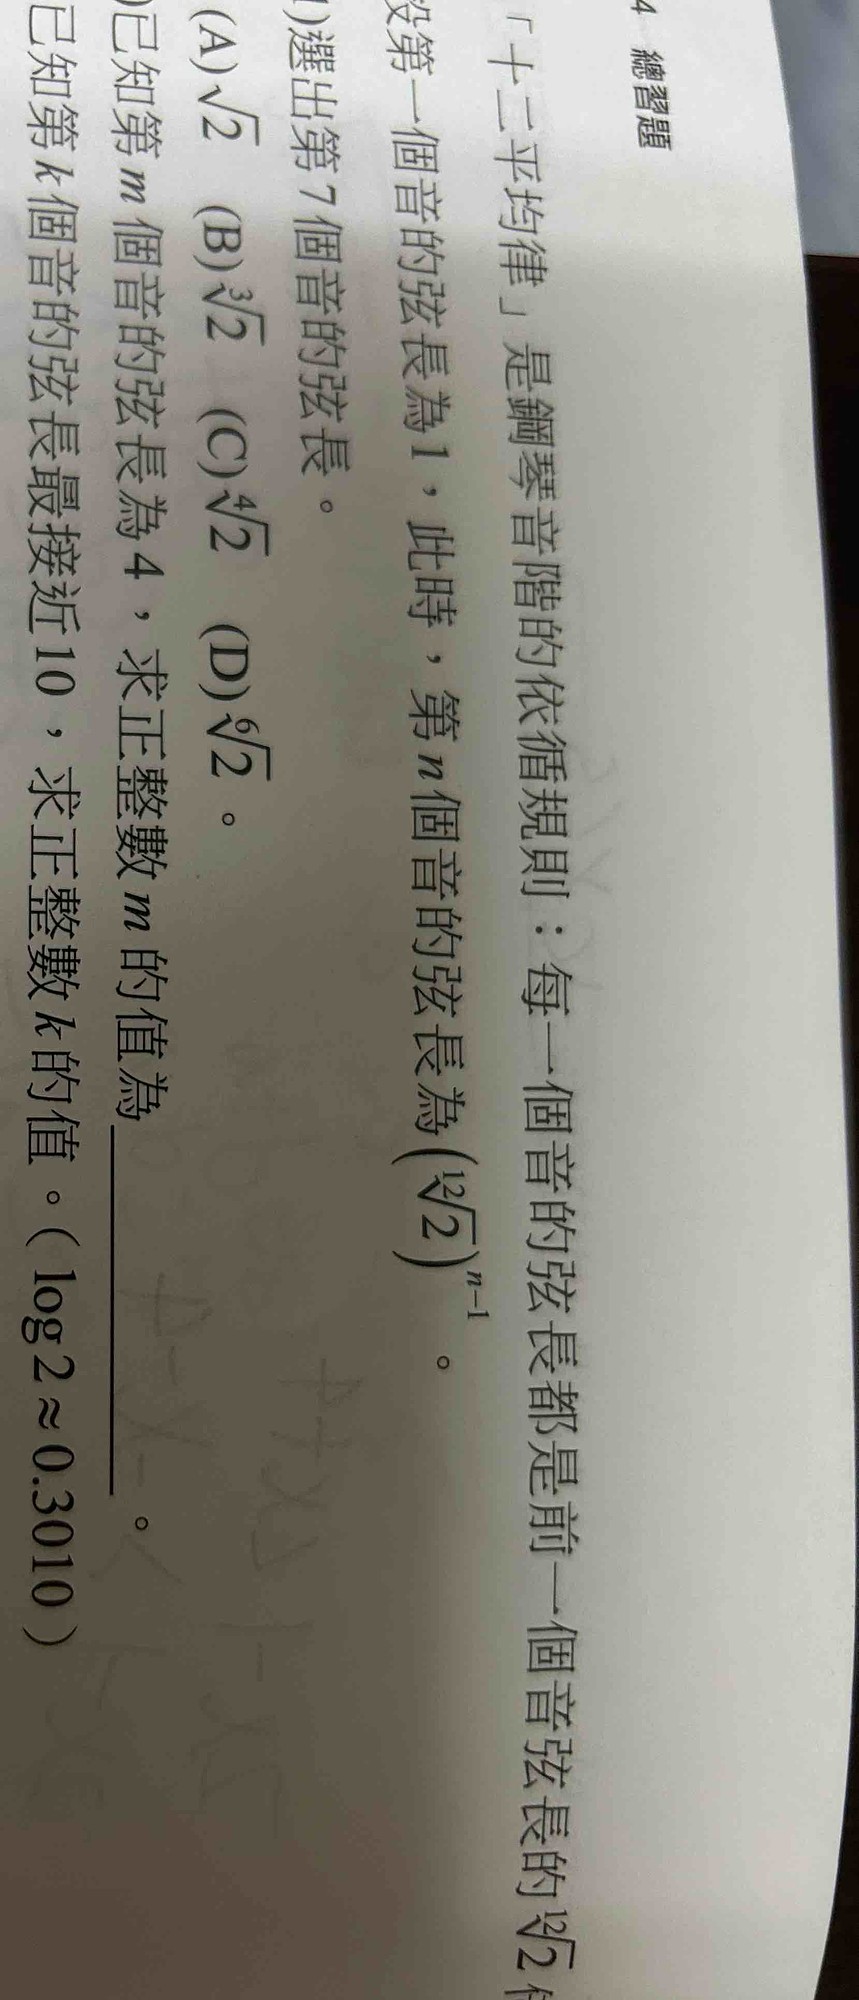 4 總習題
「十二平均律」是鋼琴音階的依循規則：每一個音的弦長都是前一個音弦長的 \sqrt[12]{2}
設第一個音的弦長為1，此時，第 n 個音的弦長為 (\sqrt[12]{2})^{n-1}。
1)選出第 7 個音的弦長。
(A)√2 (B)∛2 (C)∜2 (D)\sqrt[6]{2}。
)已知第 m 個音的弦長為 4，求正整數 m 的值為________。
已知第 k 個音的弦長最接近10，求正整數 k 的值。( log 2 ≈ 0.3010 )